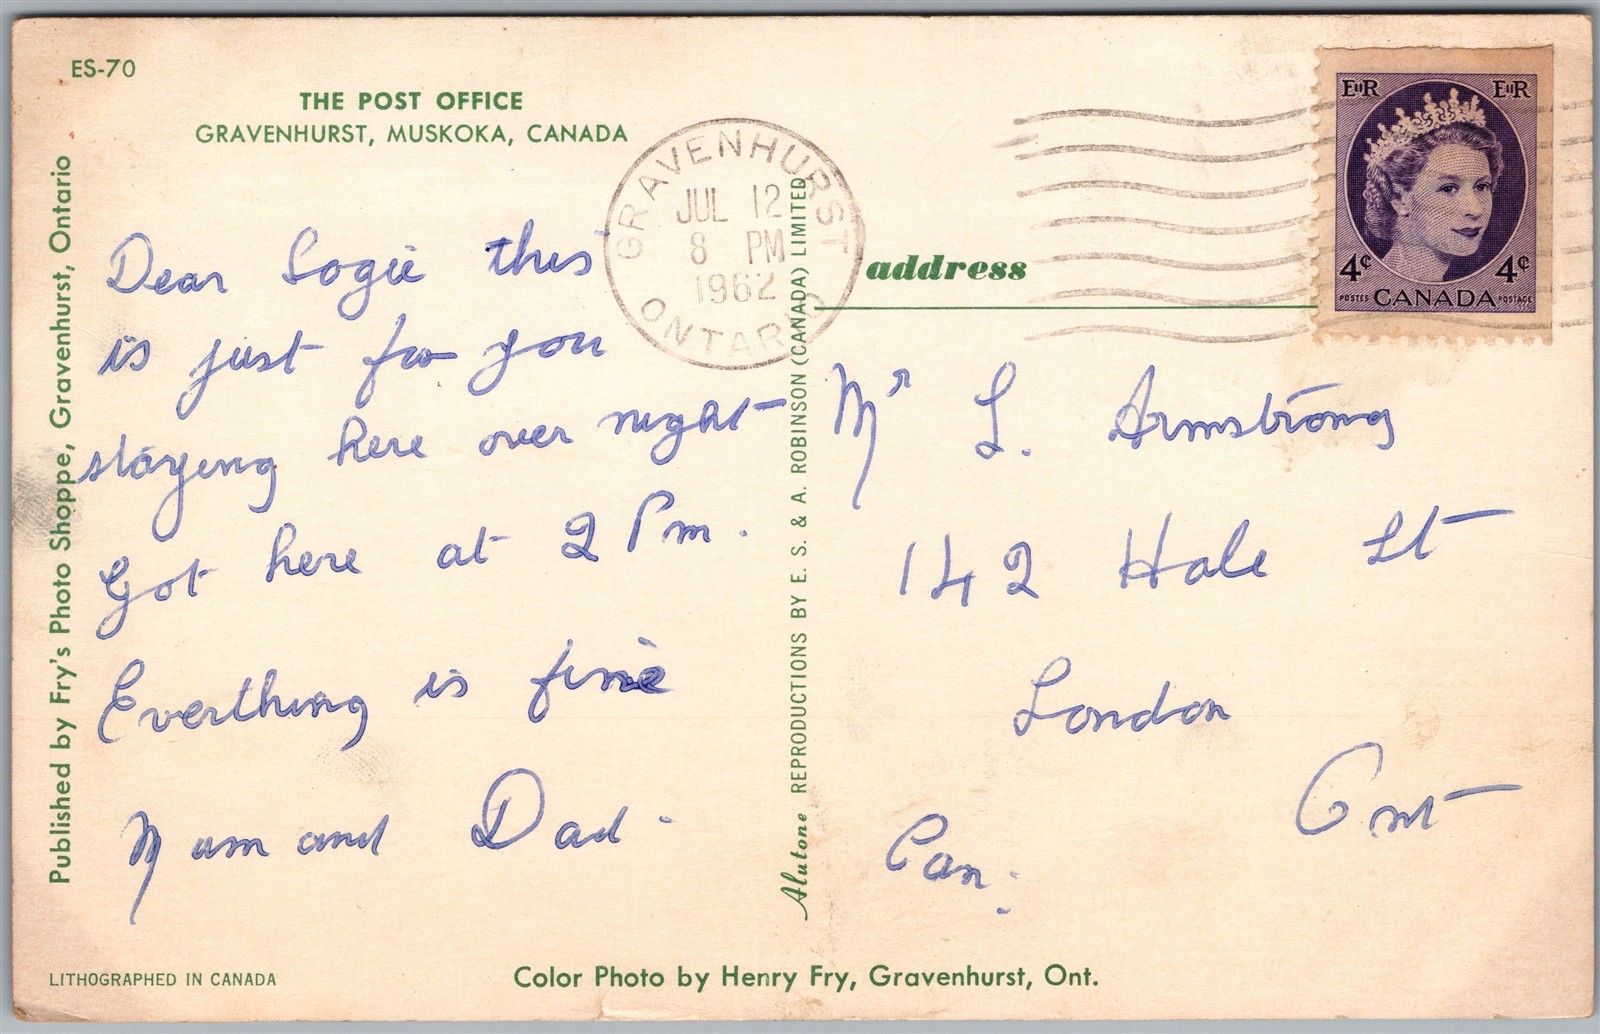 ES-70
THE POST OFFICE
GRAVENHURST, MUSKOKA, CANADA
Published by Fry's Photo Shoppe, Gravenhurst, Ontario
Dear Logie this
is just for you
staying here over night
Got here at 2 Pm.
Everthing is fine
Mum and Dad
LITHOGRAPHED IN CANADA
Color Photo by Henry Fry, Gravenhurst, Ont.
Alutone REPRODUCTIONS BY E. S. & A. ROBINSON (CANADA) LIMITED
GRAVENHURST
JUL 12
8 PM
1962
ONTARIO
address
EIIR EIIR
4¢ 4¢
POSTES CANADA POSTAGE
Mr L. Armstrong
142 Hale St
London
Ont
Can.